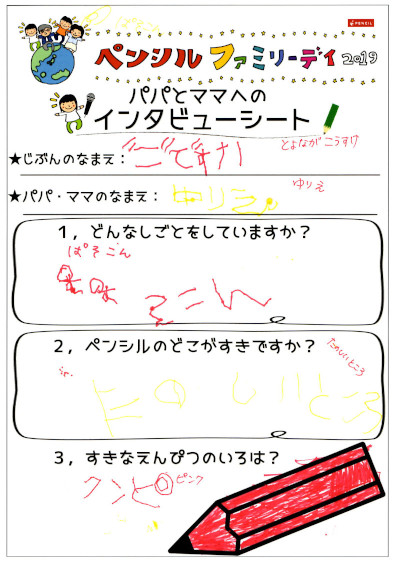 ぱそこん
PENCIL
ペンシル ファミリーデイ 2019
パパとママへの
インタビューシート
とよながこうすけ
★じぶんのなまえ：
ゆりえ
★パパ・ママのなまえ： ゆりえ
1，どんなしごとをしていますか？
ぱそこん
2，ペンシルのどこがすきですか？
たのしいところ
3，すきなえんぴつのいろは？
ピンク